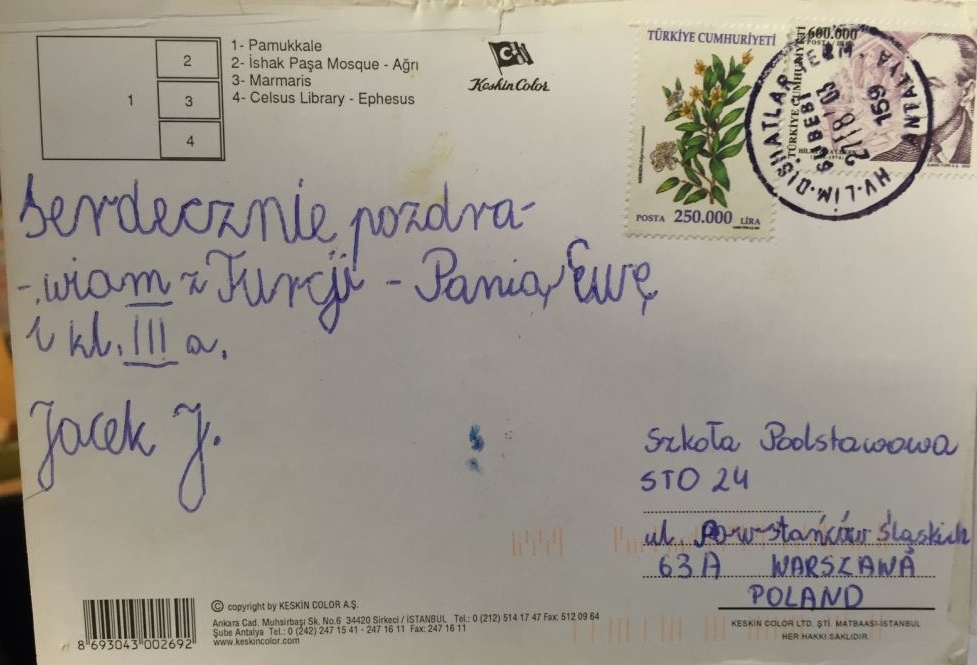 1- Pamukkale
2- İshak Paşa Mosque - Ağrı
3- Marmaris
4- Celsus Library - Ephesus
2
1
3
4
Keskin Color
TÜRKİYE CUMHURİYETİ
POSTA 250.000 LİRA
600.000
TÜRKİYE CUMHURİYETİ
HV.LİM.DIŞHATLAR
ANTALYA
159
Serdecznie pozdra-
- wiam z Turcji - Panią Ewę
i kl. III a.
Jacek J.
Szkoła Podstawowa
STO 24
ul. Powstańców Śląskich
63A WARSZAWA
POLAND
8 693043 002692
© copyright by KESKİN COLOR A.Ş.
Ankara Cad. Muhsirbaşı Sk. No.6 34420 Sirkeci / İSTANBUL Tel.: 0 (212) 514 17 47 Fax: 512 09 64
Şube Antalya Tel.: 0 (242) 247 15 41 - 247 16 11 Fax: 247 16 11
www.keskincolor.com
KESKİN COLOR LTD. ŞTİ. MATBAASI-İSTANBUL
HER HAKKI SAKLIDIR.